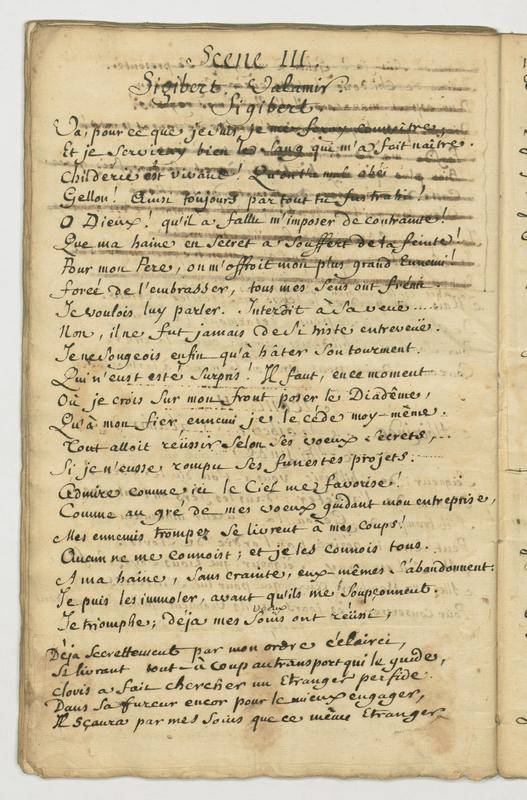 Scene III.
Sigibert. Valamir
Sigibert.
Va, pour ce que je suis je me feray connaitre,
Et je serviray bien le sang qui m'a fait naitre.
Childeric est vivant! obéi
Gellon! Ainsi toujours par tout tu fus trahi!
O Dieux! qu'il a fallu m'imposer de contrainte!
Que ma haine en secret a souffert de la feinte!
Pour mon Pere, on m'offroit mon plus grand Ennemi!
forcé de l'embrasser, tous mes sens ont frémi.
Je voulois luy parler. Interdit à sa veüe....
Non, il ne fut jamais de si triste entreveüe.
Je ne songeois enfin qu'à hâter son tourment.
Qui n'eust esté surpris! Il faut, en ce moment
Où je crois sur mon front poser le Diadême,
Qu'à mon fier ennemi je le cede moy-même.
Tout alloit réüssir selon ses voeux secrets,..
Si je n'eusse rompu ses funestes projets.
Admire comme ici le Ciel me favorise!
Comme au gré de mes voeux guidant mon entreprise,
Mes ennemis trompez se livrent à mes coups!
Aucun ne me connoist; et je les connois tous.
A ma haine, sans crainte, eux-mêmes s'abandonnent:
Je puis les immoler, avant qu'ils me soupçonnent.
voeux
Je triomphe; déja mes soins ont réussi,
Déja secrettement par mon ordre éclairci,
Se livrant tout-à coup au transport qui le guide,
Clovis a fait chercher un Etranger perfide.
Dans sa fureur encor pour le mieux engager,
Il sçaura par mes soins que ce même Etranger